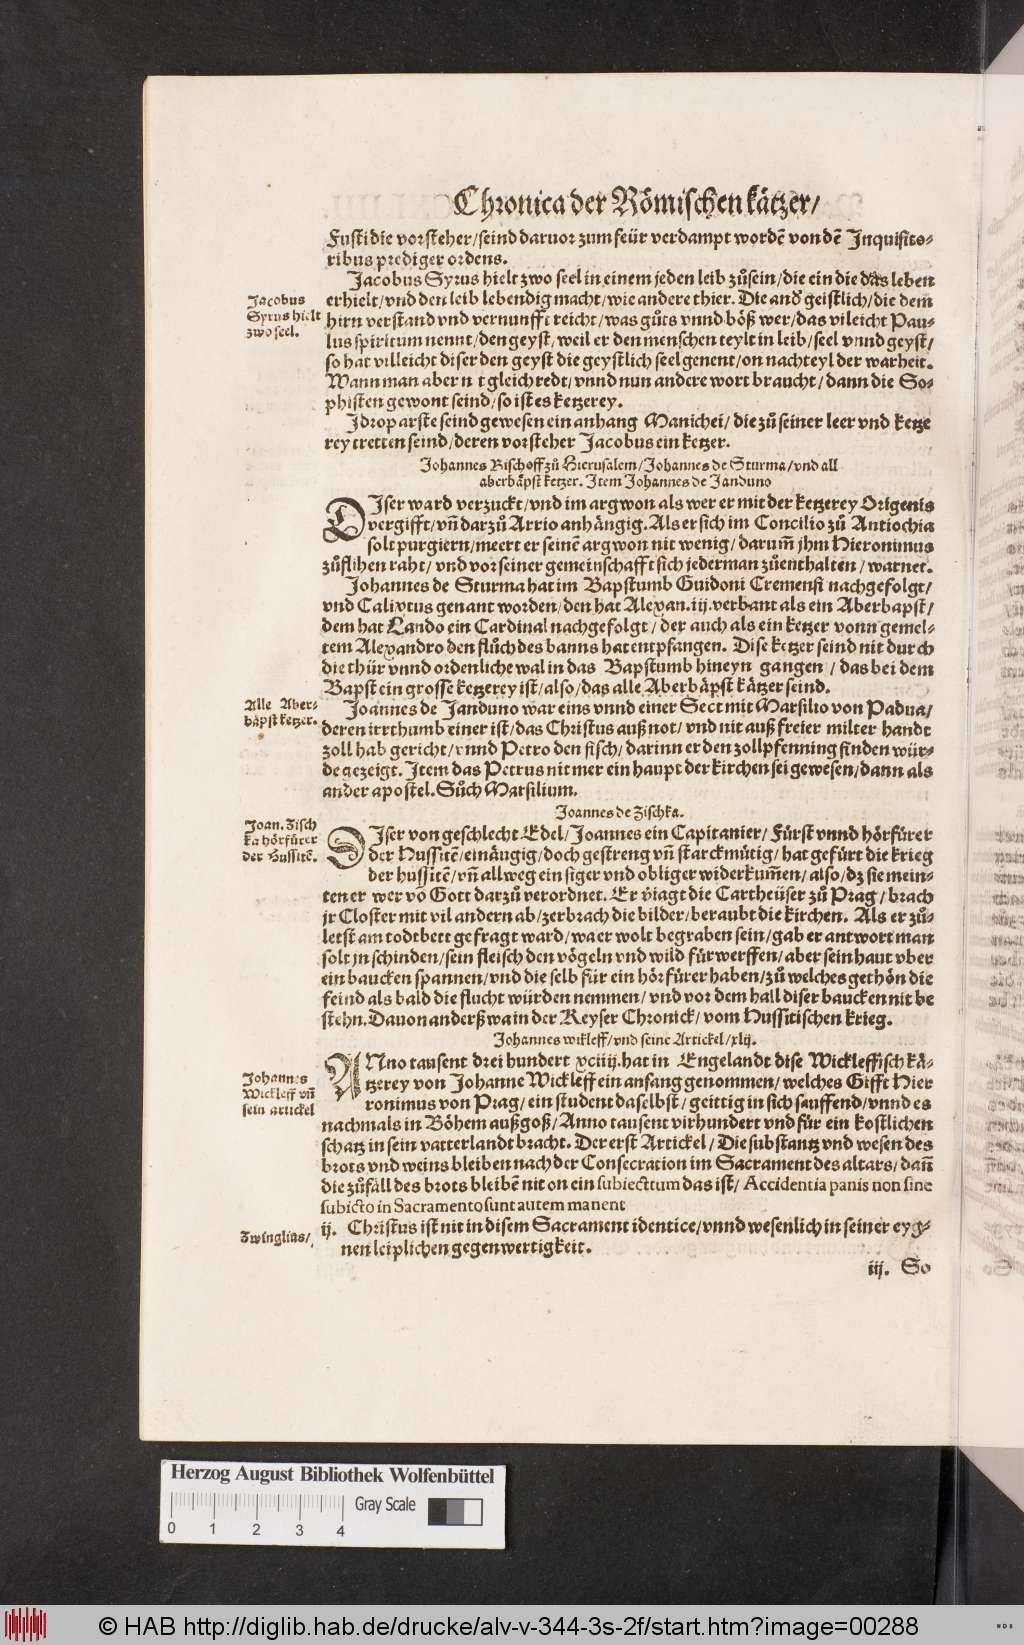 Chronica der Römischen kätzer/
Fusti die vorsteher/seind daruor zum feür verdampt wordē von dē Inquisito-
ribus prediger ordens.
Jacobus Syrus hielt zwo seel in einem jeden leib zůsein/die ein die das leben
Jacobus
Syrus hielt
zwo seel.
erhielt/vnd den leib lebendig macht/wie andere thier. Die and geistlich/die dem
hirn verstand vnd vernunfft reicht/was gůts vnnd böß wer/das vileicht Pau-
lus spiritum nennt/den geyst/weil er den menschen teylt in leib/seel vnnd geyst/
so hat villeicht diser den geyst die geystlich seel genent/on nachteyl der warheit.
Wann man aber n t gleich redt/vnnd nun andere wort braucht/dann die So-
phisten gewont seind/so ist es ketzerey.
Idroparste seind gewesen ein anhang Manichei/die zů seiner leer vnd ketze
rey tretten seind/deren vorsteher Jacobus ein ketzer.
Johannes Bischoff zů Hierusalem/Johannes de Sturma/vnd all
aberbäpst ketzer. Item Johannes de Janduno
DIser ward verzuckt/vnd im argwon als wer er mit der ketzerey Origenis
vergifft/vn̄ darzů Arrio anhängig. Als er sich im Concilio zů Antiochia
solt purgiern/meert er seinē argwon nit wenig/darum̄ jhm Hieronimus
zůflihen raht/vnd vor seiner gemeinschafft sich jederman zůenthalten/warnet.
Johannes de Sturma hat im Bapstumb Guidoni Cremensi nachgefolgt/
vnd Calixtus genant worden/den hat Alexan.iij.verbant als ein Aberbapst/
dem hat Lando ein Cardinal nachgefolgt/der auch als ein ketzer vonn gemel-
tem Alexandro den flůch des banns hat entpfangen. Dise ketzer seind nit durch
die thür vnnd ordenliche wal in das Bapstumb hineyn gangen/das bei dem
Bapst ein grosse ketzerey ist/also/das alle Aberbäpst kätzer seind.
Alle Aber-
bäpst ketzer.
Joannes de Janduno war eins vnnd einer Sect mit Marsilio von Padua/
deren irrthumb einer ist/das Christus auß not/vnd nit auß freier milter handt
zoll hab gericht/vnnd Petro den fisch/darinn er den zollpfenning finden wür-
de gezeigt. Item das Petrus nit mer ein haupt der kirchen sei gewesen/dann als
ander apostel. Sůch Marsilium.
Joannes de Zischka.
Joan. Zisch
ka hörfürer
der Hussitē.
DIser von geschlecht Edel/Joannes ein Capitanier/Fürst vnnd hörfürer
der Hussitē/einäugig/doch gestreng vn̄ starckmütig/hat gefürt die krieg
der hussitē/vn̄ allweg ein siger vnd obliger widerkum̄en/also/dz sie mein-
ten er wer vō Gott darzů verordnet. Er v̄iagt die Cartheüser zů Prag/brach
jr Closter mit vil andern ab/zerbrach die bilder/beraubt die kirchen. Als er zů-
letst am todtbett gefragt ward/wa er wolt begraben sein/gab er antwort man
solt jn schinden/sein fleisch den vögeln vnd wild fürwerffen/aber sein haut vber
ein baucken spannen/vnd die selb für ein hörfürer haben/zů welches gethön die
feind als bald die flucht würden nemmen/vnd vor dem hall diser baucken nit be
stehn. Dauon anderßwa in der Keyser Chronick/vom Hussitischen krieg.
Johannes wikleff/vnd seine Artickel/xlij.
Johannes
Wickleff vn̄
sein artickel
ANno tausent drei hundert xciiij.hat in Engelandt dise Wickleffisch kä-
tzerey von Johanne Wickleff ein anfang genommen/welches Gifft Hier
ronimus von Prag/ein student daselbst/geittig in sich sauffend/vnnd es
nachmals in Böhem außgoß/Anno tausent virhundert vnd für ein kostlichen
schatz in sein vatterlandt bracht. Der erst Artickel/Die substantz vnd wesen des
brots vnd weins bleiben nach der Consecration im Sacrament des altars/dan̄
die zůfäll des brots bleibē nit on ein subiecttum das ist/Accidentia panis non sine
subicto in Sacramento sunt autem manent
Zwinglius/
ij. Christus ist nit in disem Sacrament identice/vnnd wesenlich in seiner eyg-
nen leiplichen gegenwertigkeit.
iij. So
Herzog August Bibliothek Wolfenbüttel
Gray Scale
0 1 2 3 4
© HAB http://diglib.hab.de/drucke/alv-v-344-3s-2f/start.htm?image=00288